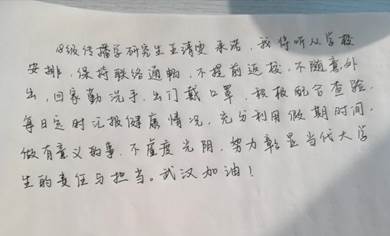 18级传播学研究生王清雯 承诺，我将听从学校
安排，保持联络通畅，不提前返校，不随意外
出，回家勤洗手，出门戴口罩，积极配合查验，
每日定时汇报健康情况，充分利用假期时间，
做有意义的事，不虚度光阴，努力彰显当代大学
生的责任与担当。武汉加油！